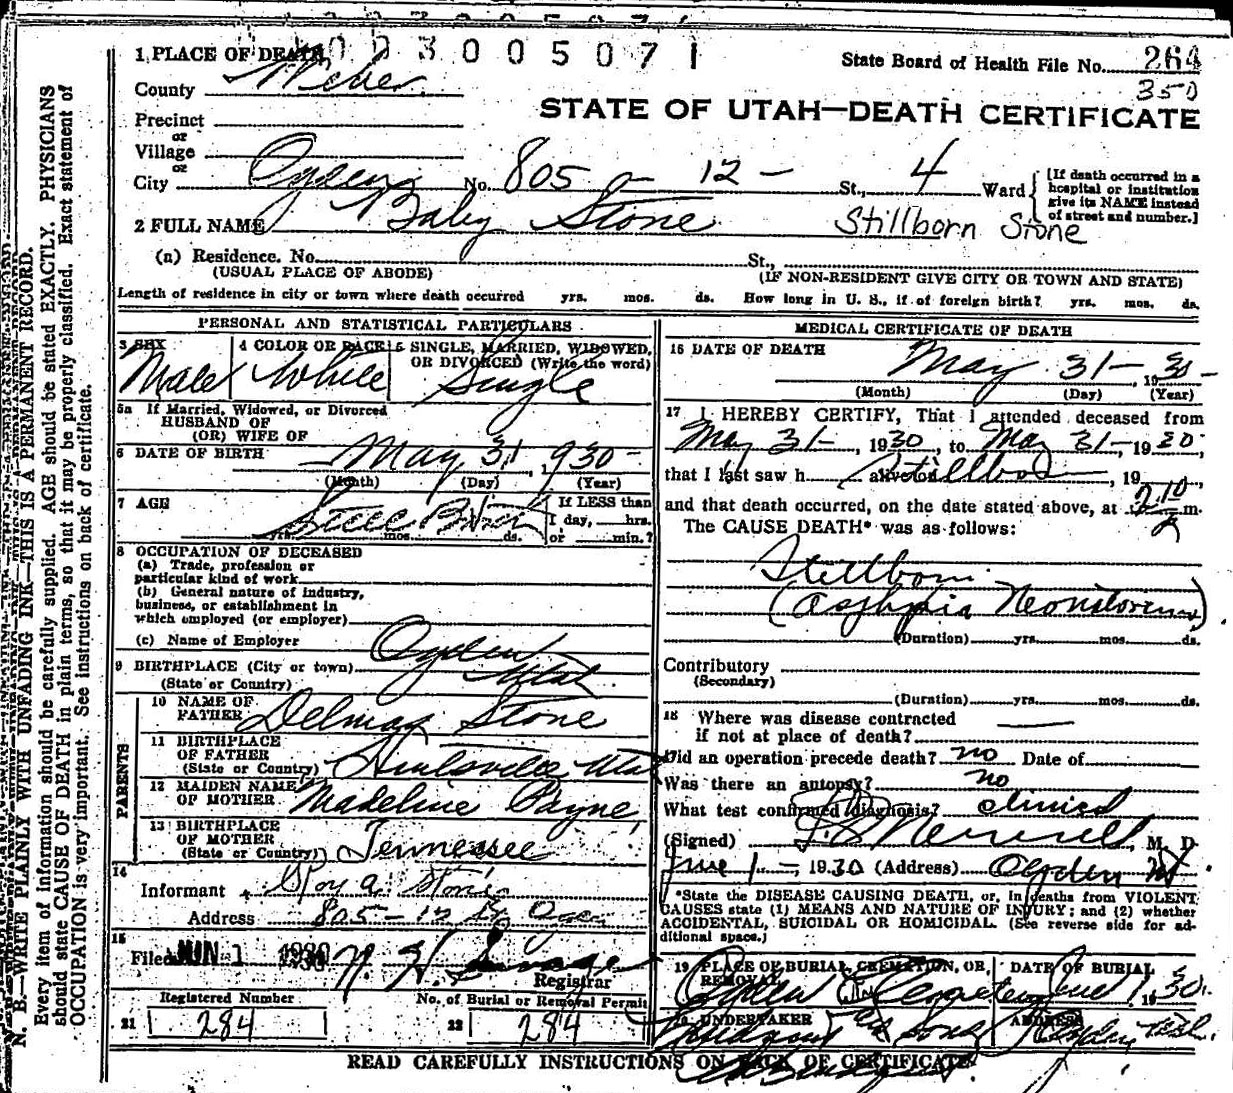 003005071
1 PLACE OF DEATH
State Board of Health File No. 264
350
County Weber
STATE OF UTAH—DEATH CERTIFICATE
Precinct
or
Village
or
City Ogden No. 805 - 12 - St., 4 Ward
[If death occurred in a hospital or institution give its NAME instead of street and number.]
2 FULL NAME Baby Stone Stillborn Stone
(a) Residence. No. St.,
(USUAL PLACE OF ABODE) (IF NON-RESIDENT GIVE CITY OR TOWN AND STATE)
Length of residence in city or town where death occurred yrs. mos. ds. How long in U. S., if of foreign birth? yrs. mos. ds.
PERSONAL AND STATISTICAL PARTICULARS
3 SEX 4 COLOR OR RACE 5 SINGLE, MARRIED, WIDOWED,
OR DIVORCED (Write the word)
Male White Single
5a If Married, Widowed, or Divorced
HUSBAND OF
(OR) WIFE OF
6 DATE OF BIRTH May 31, 1930-
(Month) (Day) (Year)
7 AGE Still Birth If LESS than
1 day, hrs.
yrs. mos. ds. or min.?
8 OCCUPATION OF DECEASED
(a) Trade, profession or
particular kind of work
(b) General nature of industry,
business, or establishment in
which employed (or employer)
(c) Name of Employer
9 BIRTHPLACE (City or town) Ogden
(State or Country) Utah
PARENTS
10 NAME OF
FATHER Delmar Stone
11 BIRTHPLACE
OF FATHER
(State or Country) Huntsville Utah
12 MAIDEN NAME
OF MOTHER Madeline Payne
13 BIRTHPLACE
OF MOTHER
(State or Country) Tennessee
14
Informant Roy A. Stone
Address 805-12 St Ogden
15
Filed JUN 1 1930
Registrar
Registered Number No. of Burial or Removal Permit
21 284 22 284
MEDICAL CERTIFICATE OF DEATH
16 DATE OF DEATH May 31-, 1930-
(Month) (Day) (Year)
17 I HEREBY CERTIFY, That I attended deceased from
May 31-, 1930, to May 31-, 1930,
that I last saw h alive on Stillborn, 19
and that death occurred, on the date stated above, at 2:10 m.
The CAUSE DEATH* was as follows:
Stillborn
(Asphyxia Neonatorum)
(Duration) yrs. mos. ds.
Contributory
(Secondary)
(Duration) yrs. mos. ds.
18 Where was disease contracted
if not at place of death?
Did an operation precede death? no Date of
Was there an autopsy? no
What test confirmed diagnosis? clinical
(Signed) Merrill, M. D.
June 1-, 1930 (Address) Ogden Ut
*State the DISEASE CAUSING DEATH, or, in deaths from VIOLENT
CAUSES state (1) MEANS AND NATURE OF INJURY; and (2) whether
ACCIDENTAL, SUICIDAL OR HOMICIDAL. (See reverse side for ad-
ditional space.)
19 PLACE OF BURIAL, CREMATION, OR, DATE OF BURIAL
REMOVAL
Ogden City Cemetery June 1 1930.
20 UNDERTAKER ADDRESS
& Sons Ogden Utah.
READ CAREFULLY INSTRUCTIONS ON BACK OF CERTIFICATE
N. B.—WRITE PLAINLY WITH UNFADING INK—THIS IS A PERMANENT RECORD.
Every item of information should be carefully supplied. AGE should be stated EXACTLY. PHYSICIANS
should state CAUSE OF DEATH in plain terms, so that it may be properly classified. Exact statement of
OCCUPATION is very important. See instructions on back of certificate.